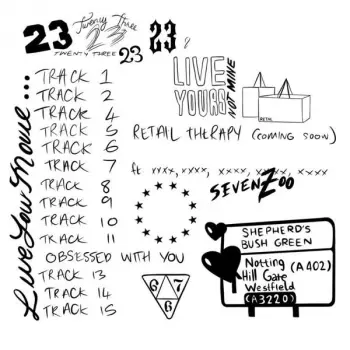 23
Twenty Three
23
TWENTY THREE
23
23
LIVE
YOURS
NOT MINE
RETAIL
TRACK 1
TRACK 2
TRACK 4
TRACK 5
TRACK 6
TRACK 7
TRACK 8
TRACK 9
TRACK 10
TRACK 11
OBSESSED WITH YOU
TRACK 13
TRACK 14
TRACK 15
RETAIL THERAPY (COMING SOON)
ft xxxx, xxxx, xxxx, xxxx, xxxx
SEVENZOO
SHEPHERD'S
BUSH GREEN
Notting
Hill Gate (A402)
Westfield
(A3220)
6 7
6